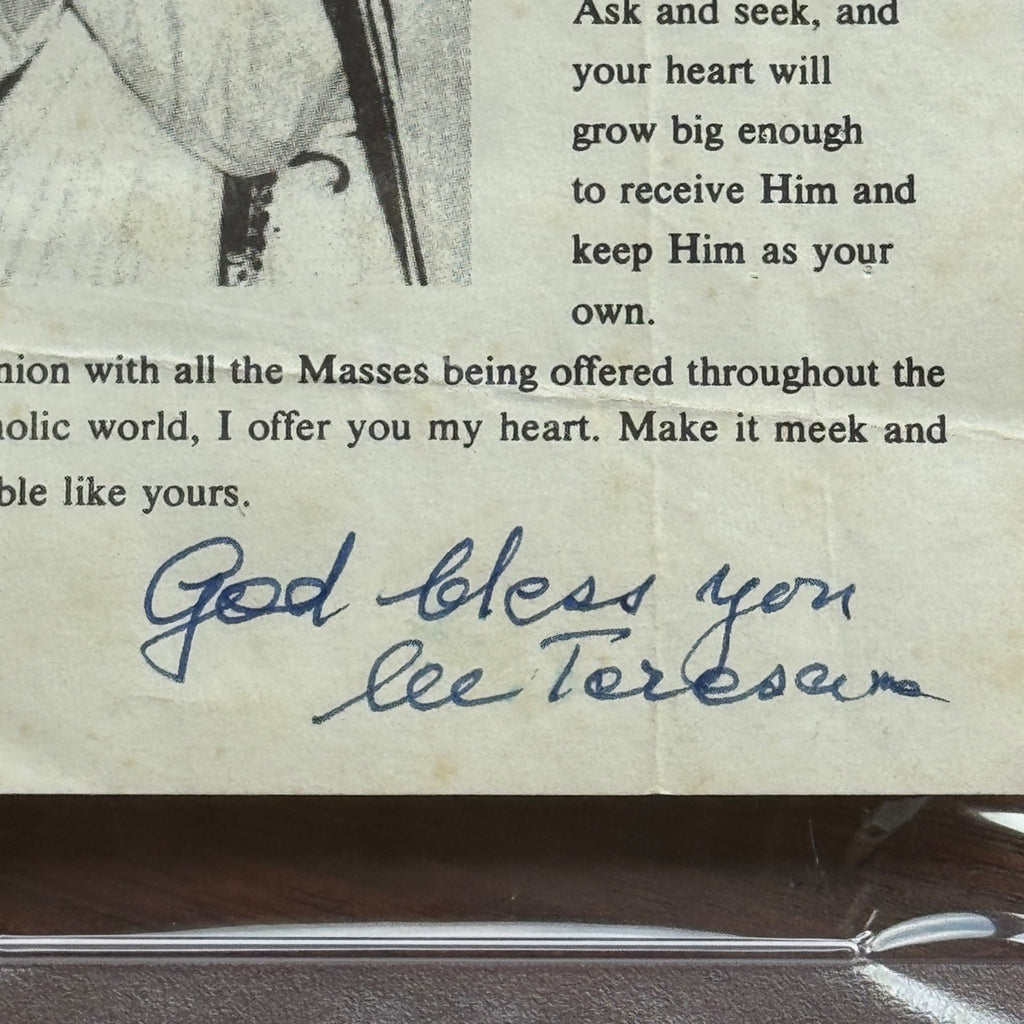 Ask and seek, and
your heart will
grow big enough
to receive Him and
keep Him as your
own.
nion with all the Masses being offered throughout the
olic world, I offer you my heart. Make it meek and
ble like yours.
God bless you
lee Teresa me